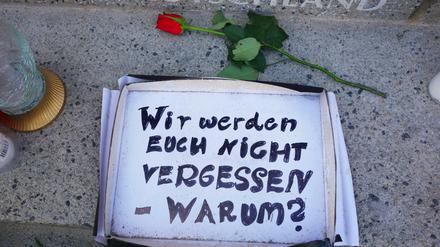 Wir werden
EUCH NICHT
VERGESSEN
- WARUM?